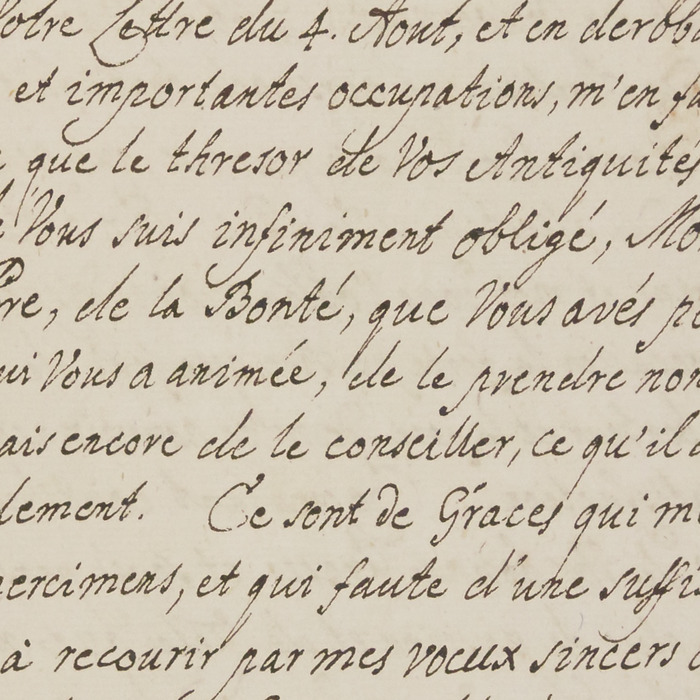 Votre Lettre du 4. Aout, et en derob
et importantes occupations, m'en fa
que le thresor de Vos Antiquités
Vous suis infiniment obligé, Mo
Pre, de la Bonté, que Vous avés p
ui Vous a animée, de le prendre non
ais encore de le conseiller, ce qu'il a
lement. Ce sont de Graces qui m
ercimens, et qui faute d'une suffis
à recourir par mes voeux sincers